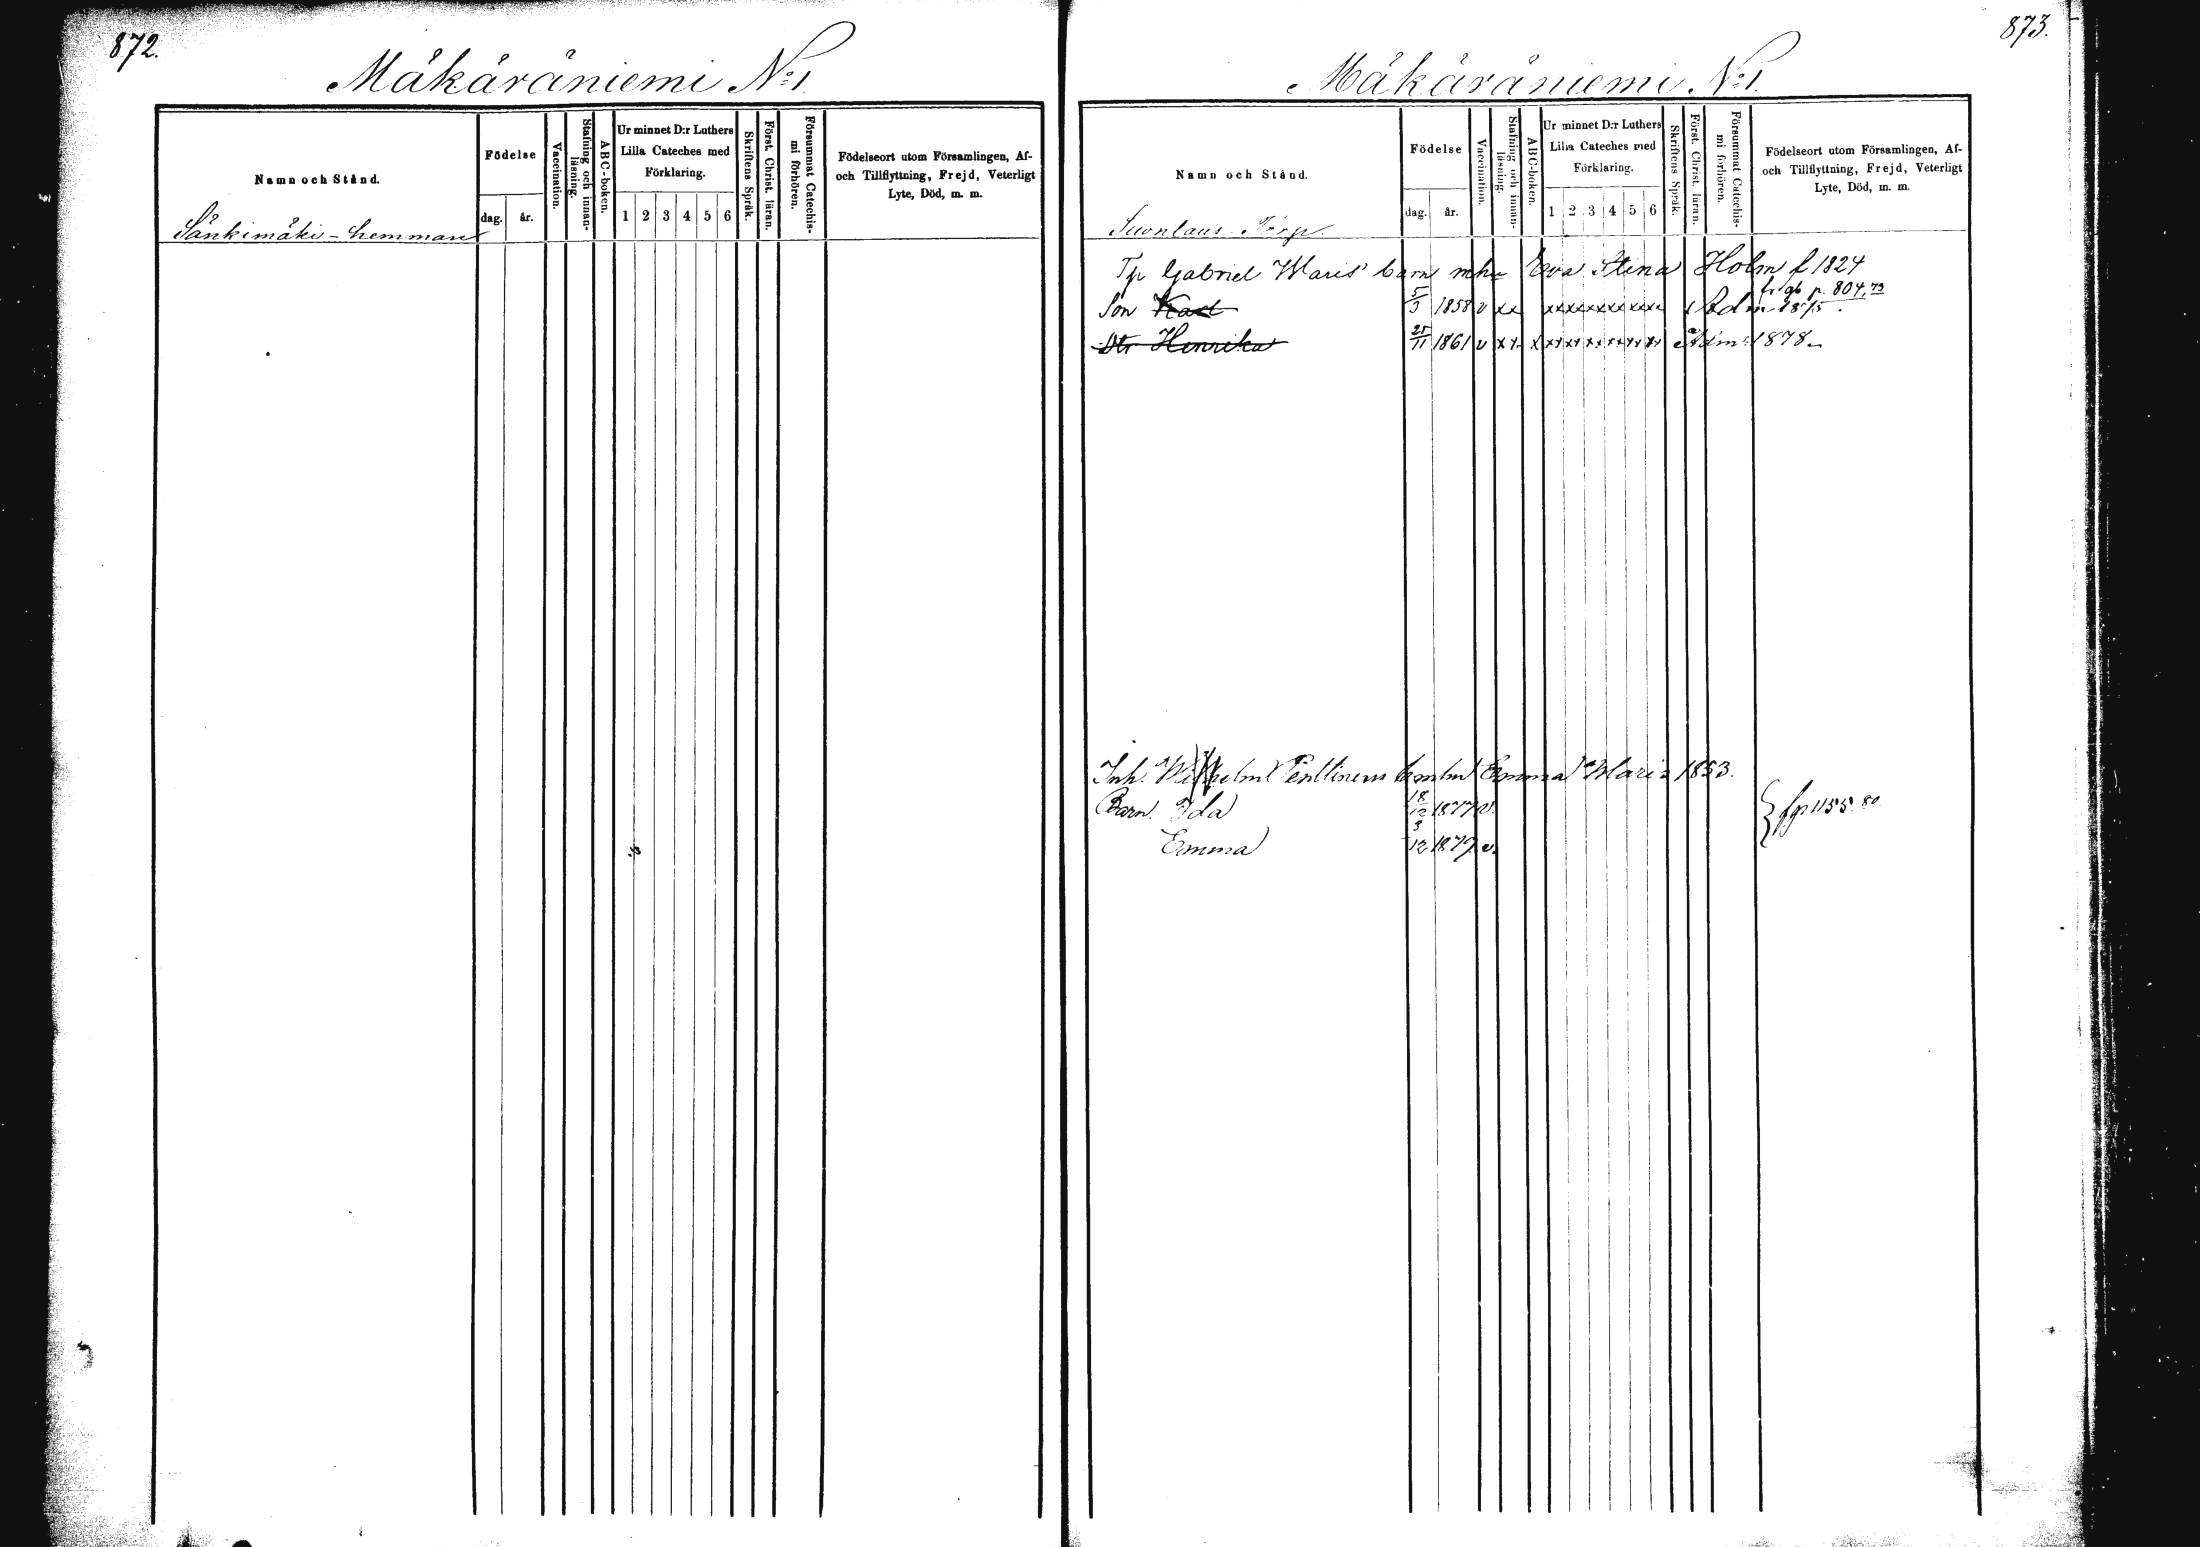 872.
Mäkäräniemi No:1.
Namn och Stånd.
Födelse
dag.
år.
Vaccination.
Stafning och innan-
läsning.
ABC-boken.
Ur minnet D:r Luthers
Lilla Cateches med
Förklaring.
1 2 3 4 5 6
Skriftens Språk.
Först. Christ. läran.
Försummat Catechis-
mi förhören.
Födelseort utom Församlingen, Af-
och Tillflyttning, Frejd, Veterligt
Lyte, Död, m. m.
Sänkimäki - hemman
873.
Mäkäräniemi No:1.
Namn och Stånd.
Födelse
dag.
år.
Vaccination.
Stafning och innan-
läsning.
ABC-boken.
Ur minnet D:r Luthers
Lilla Cateches med
Förklaring.
1 2 3 4 5 6
Skriftens Språk.
Först. Christ. läran.
Försummat Catechis-
mi förhören.
Födelseort utom Församlingen, Af-
och Tillflyttning, Frejd, Veterligt
Lyte, Död, m. m.
Torp.
Tp Gabriel Waris' barn Eva Stina Holm f 1824
p. 804, 73
Son Karl 5/3 1858 v xx xxxxxxxxxxxx Adm 1875.
Dtr Henrika 25/11 1861 v xx x xx xx xx xx xx xx Adm. 1878.
Inh. Wilhelm Penttinens Emma Waris 1853.
Barn. Ida 18/12 1877 v.
fp 1155. 80
Emma 3/12 1879 v.